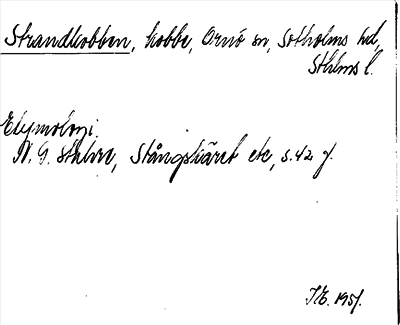 Strandkobben, kobbe, Ornö sn, Sotholms hd,
Sthlms l.
Etymologi.
N. G. Stahre, Stångskäret etc, s. 42 f.
1951.